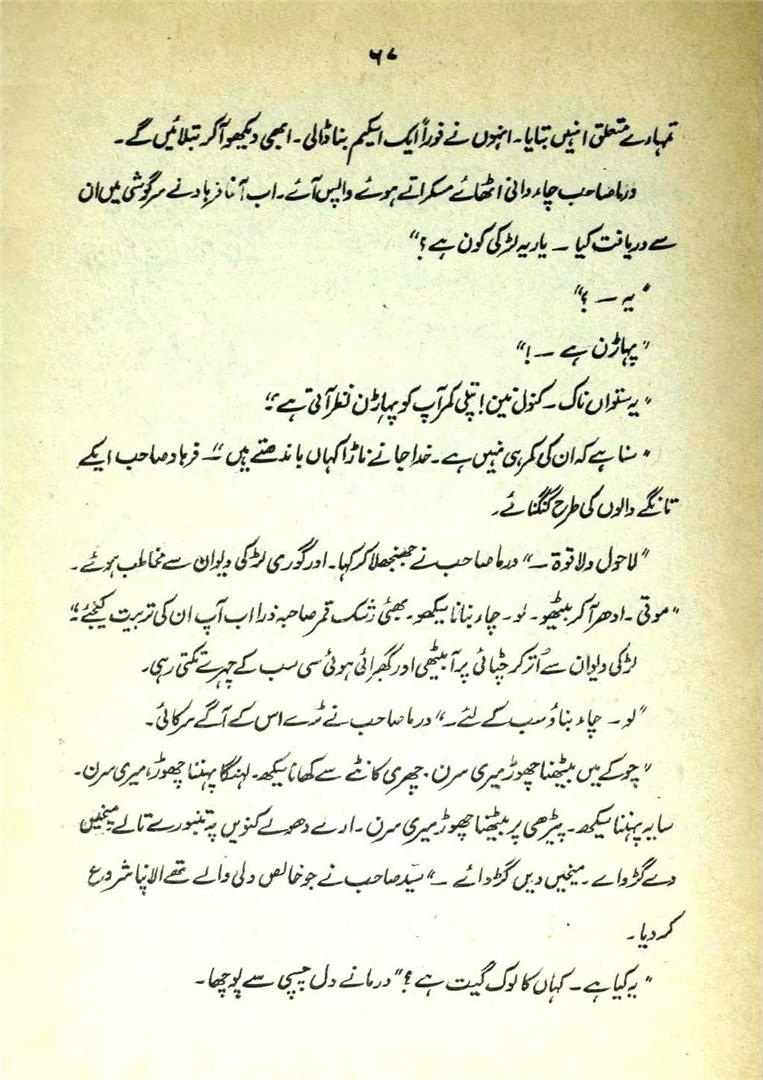 ۶۷
تمہارے متعلق انہیں بتایا۔ انہوں نے فوراً ایک اسکیم بنا ڈالی۔ ابھی دیکھو آکر بتلائیں گے۔
درما صاحب چاء دانی اٹھائے مسکراتے ہوئے واپس آئے۔ اب آغا فرہاد نے سرگوشی میں ان
سے دریافت کیا — یار یہ لڑکی کون ہے؟"
"یہ — ؟"
"پہاڑن ہے — !"
"یہ ستواں ناک۔ کنول نین! پتلی کمر آپ کو پہاڑن نظر آتی ہے"
"سنا ہے کہ ان کی کمر ہی نہیں ہے۔ خدا جانے ناڑا کہاں باندھتے ہیں" — فرہاد صاحب ایکے
تانگے والوں کی طرح گنگنائے۔
"لاحول ولا قوۃ —" ورما صاحب نے جھنجھلا کر کہا۔ اور گوری لڑکی دیوان سے مخاطب ہوئے۔
"موتی۔ ادھر آکر بیٹھو۔ لو۔ چاء بنانا سیکھو۔ بھئی رشک قمر صاحبہ ذرا اب آپ ان کی تربیت کیجئے"
لڑکی دیوان سے اُتر کر چٹائی پر آبیٹھی اور گھبرائی ہوئی سی سب کے چہرے تکتی رہی۔
"لو۔ چاء بناؤ سب کے لئے۔" ورما صاحب نے ٹرے اس کے آگے سرکائی۔
"چوکے میں بیٹھنا چھوڑ میری سرن۔ چھری کانٹے سے کھانا سیکھ۔ لہنگا پہننا چھوڑ، میری سرن۔
سایہ پہننا سیکھ۔ پیڑھی پر بیٹھنا چھوڑ میری سرن۔ ارے دھولے کنویں پہ تنبورے تالے میخیں
دے گڑوائے۔ میخیں دیں گڑوائے —" سیّد صاحب نے جو خالص دلی والے تھے الاپنا شروع
کر دیا۔
"یہ کیا ہے۔ کہاں کا لوک گیت ہے؟" ورما نے دل چسپی سے پوچھا۔